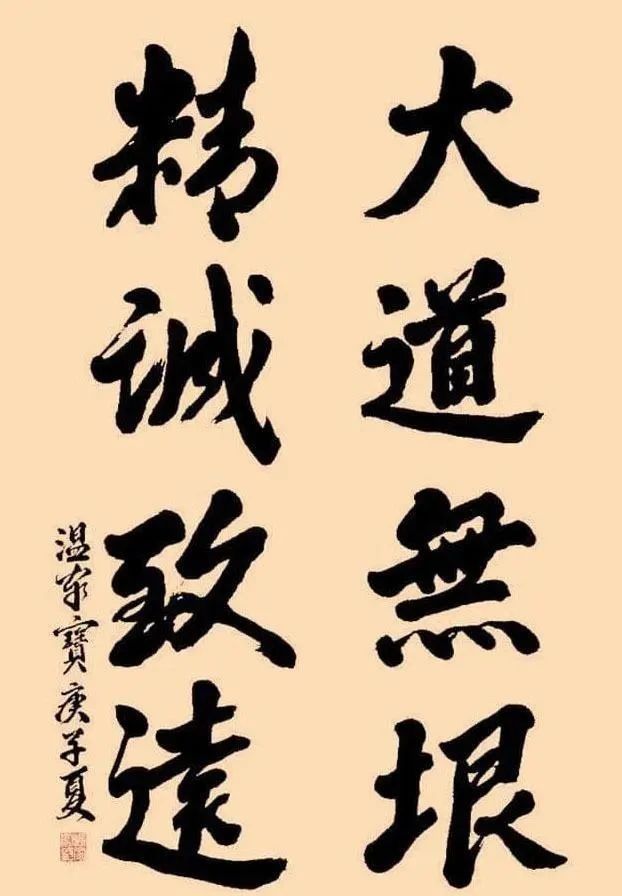 大道無垠
精誠致遠
温泉寶庚子夏